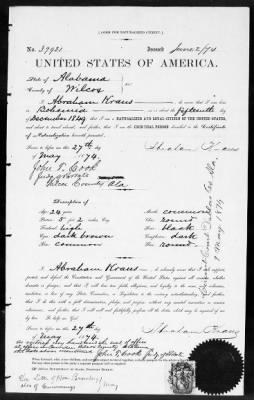 [FORM FOR NATURALIZED CITIZEN.]
No. 39921 Issued June 2/74
UNITED STATES OF AMERICA.
State of Alabama
County of Wilcox
I Abraham Kraus, do swear that I was born in
Bohemia on or about the fifteenth day
of December 1849; that I am a NATURALIZED AND LOYAL CITIZEN OF THE UNITED STATES,
and about to travel abroad; and further, that I am the IDENTICAL PERSON described in the Certificate
of Naturalization herewith presented.
Sworn to before me this 27th day
of May 1874. Abraham Kraus
John T. Cook
Judge of Probate
Wilcox County Ala
Description of
Age: 24 years Mouth: common
Stature: 5 feet 2 inches Chin: round
Forehead: high Hair: black
Eyes: dark brown Complexion: dark
Nose: common Face: round
I Abraham Kraus do solemnly swear that I will support, protect
and defend the Constitution and Government of the United States against all enemies, whether
domestic or foreign; and that I will bear true faith, allegiance, and loyalty to the same, any ordinance,
resolution, or law of any State, Convention, or Legislature to the contrary notwithstanding; and further,
that I do this with a full determination, pledge, and purpose, without any mental reservation or evasion
whatsoever; and further, that I will well and faithfully perform all the duties which may be required of me
by law. So help me God.
Sworn to before me this 27th day
of May 1874. Abraham Kraus
John T. Cook Judge of Probate